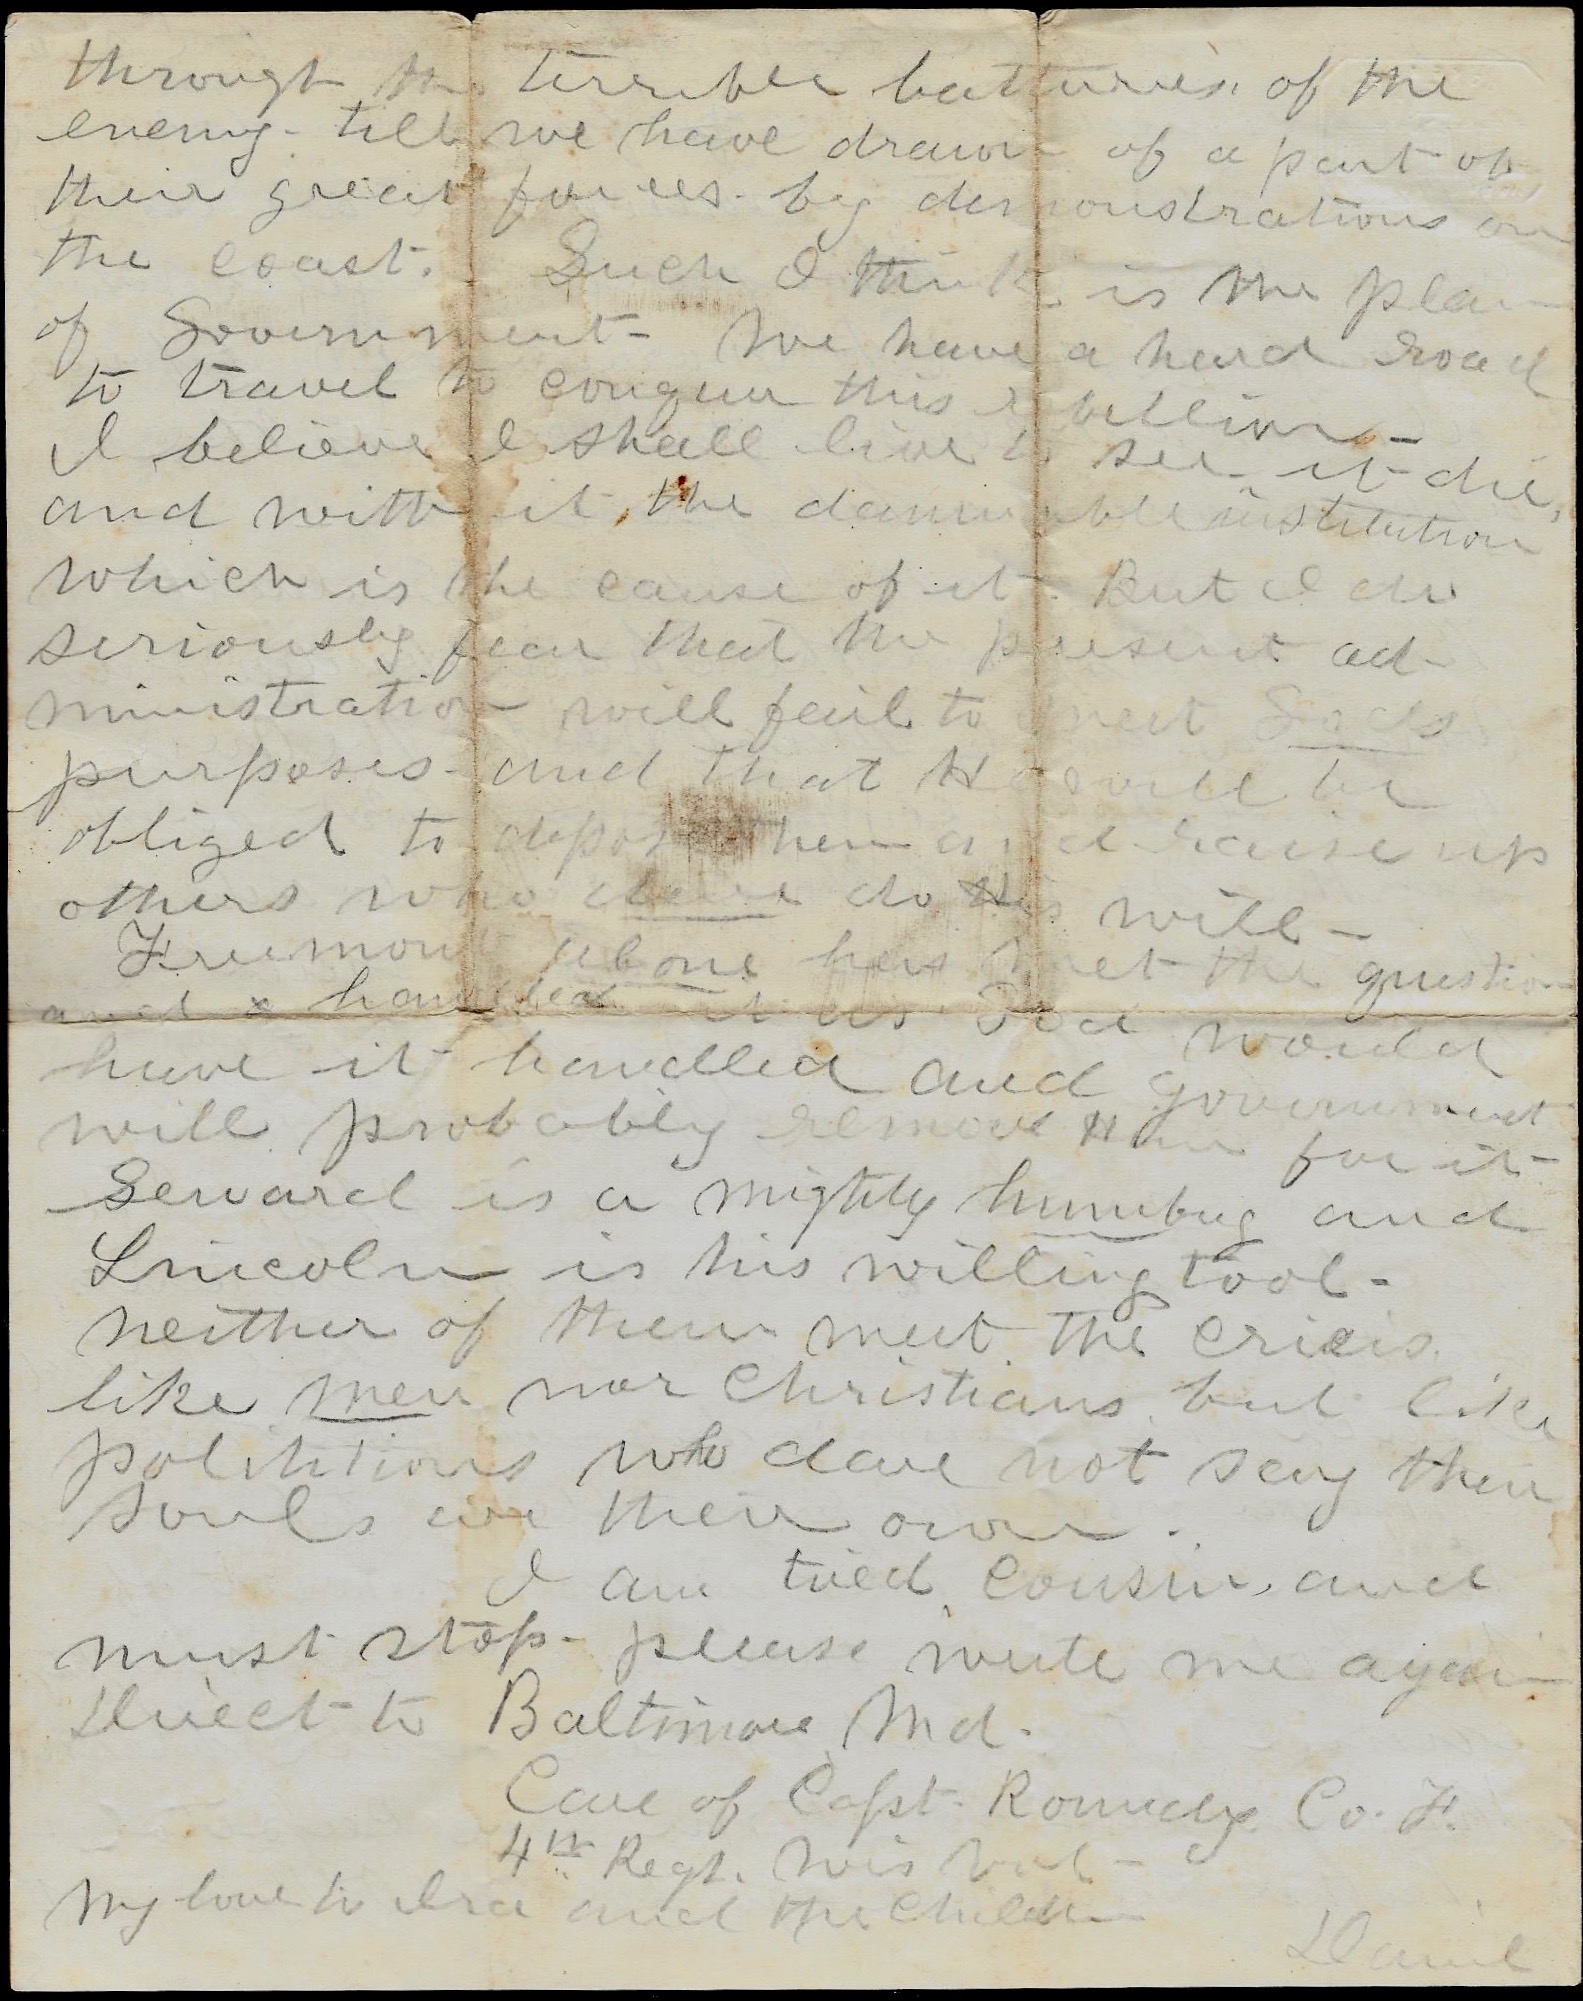 through the terrible batteries of the
enemy - till we have drawn of a part of
their great forces - by demonstrations on
the coast. Such I think is the plan
of Government - We have a hard road
to travel to conquer this rebellion -
I believe I shall live to see it die,
and with it, the damnable institution
which is the cause of it - But I do
seriously fear that the present ad-
ministration will fail to meet Gods
purposes - and that He will be
obliged to depose them and raise up
others who dare do His will -
Freemont alone has met the question
and handled it as God would
have it handled and government
will probably remove Him for it -
Seward is a mighty humbug and
Lincoln is his willing tool -
neither of them meet the crisis
like men nor Christians but like
polititions who dare not say their
souls are their own.
I am tied Cousin, and
must stop - please write me again
Direct to Baltimore Md.
Care of Capt. Romedy Co. F.
4th Regt. Wis Vol -
My love to Ira and the children
Daniel